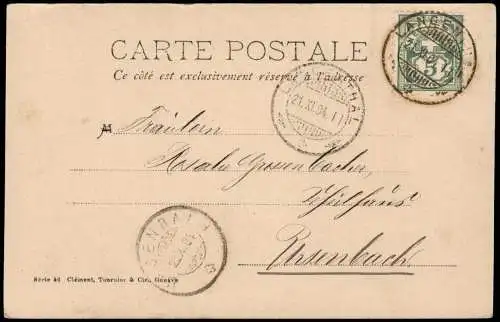 CARTE POSTALE
Ce côté est exclusivement réservé à l'adresse
5
21.XI.04
Fräulein
Rosalie Grossenbacher,
Ursenbach
Série 46 Clément, Tournier & Cie, Genève